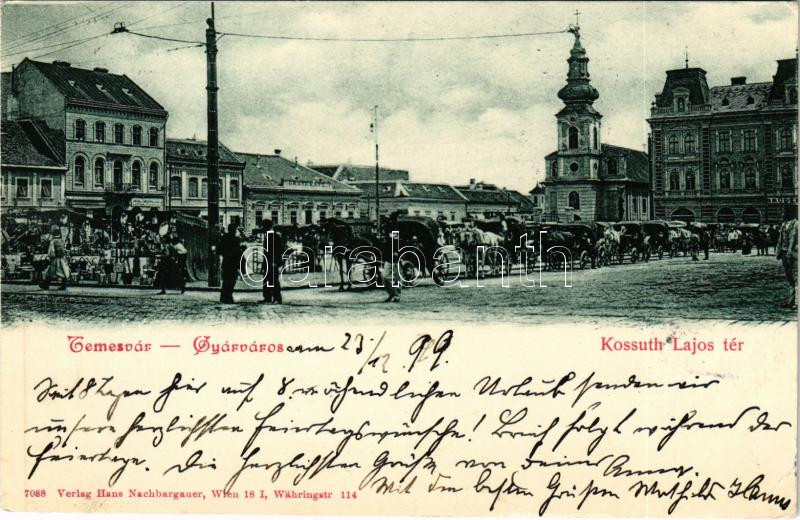 darabanth
Temesvár — Gyárváros am 23/12 99.
Kossuth Lajos tér
Seit 8 Tagen hier auf 8 wöchentlichen Urlaub senden wir
unsere herzlichsten Feiertagswünsche! Brief folgt während der
Feiertage. Die herzlichsten Grüße von deiner Anna.
Mit den besten Grüßen Mathilde
7088 Verlag Hans Nachbargauer, Wien 18 I, Währingstr 114